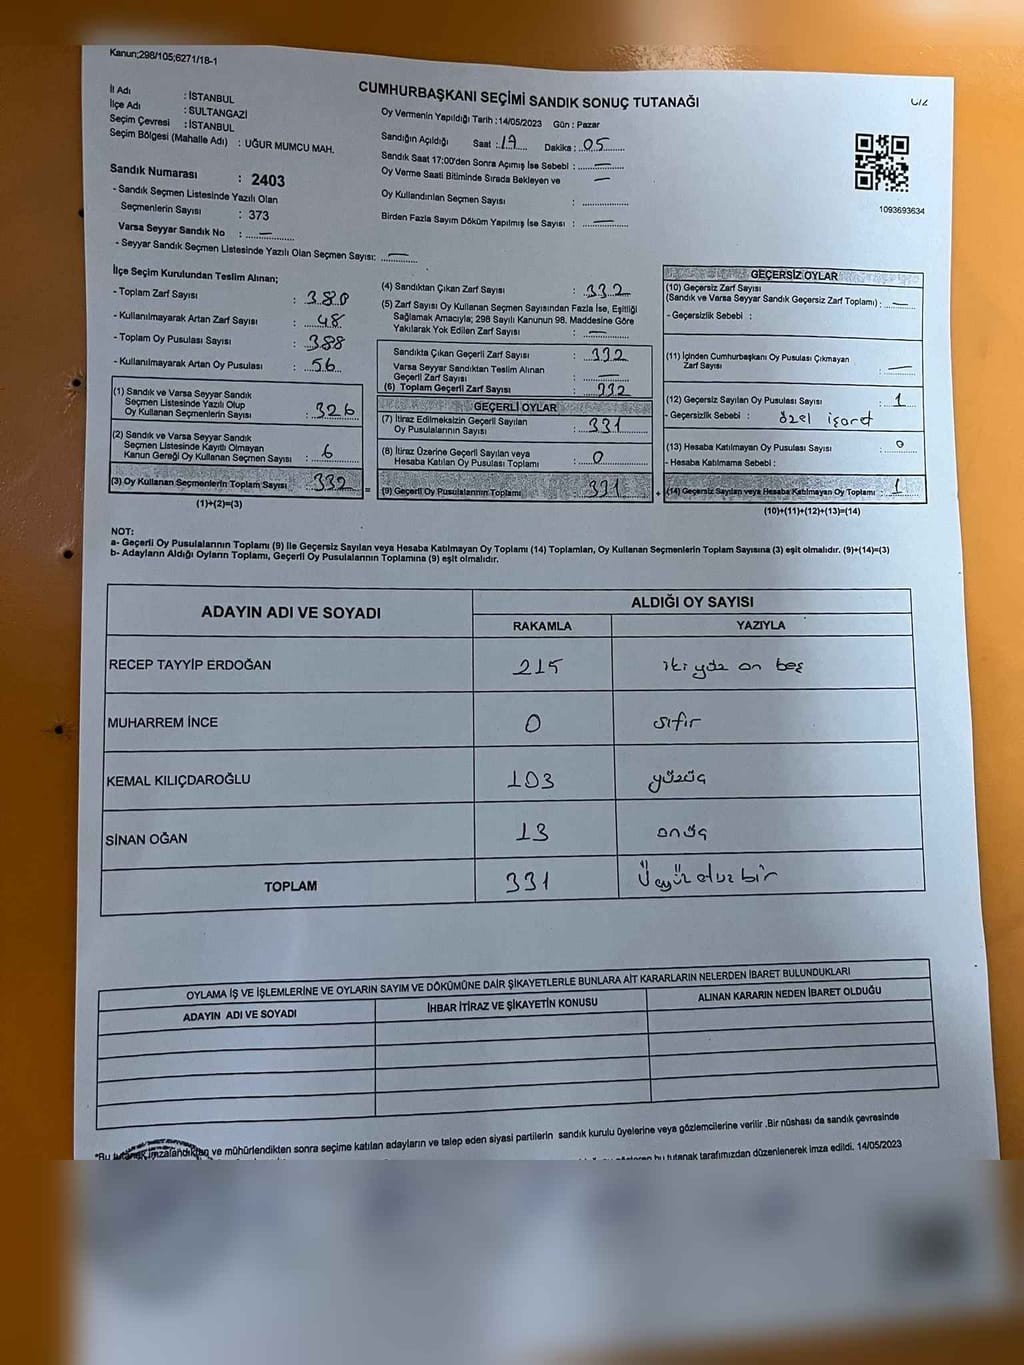 Kanun;298/105;6271/18-1
CUMHURBAŞKANI SEÇİMİ SANDIK SONUÇ TUTANAĞI
İl Adı : İSTANBUL
İlçe Adı : SULTANGAZİ
Seçim Çevresi : İSTANBUL
Seçim Bölgesi (Mahalle Adı) : UĞUR MUMCU MAH.
Oy Vermenin Yapıldığı Tarih : 14/05/2023 Gün : Pazar
Sandığın Açıldığı Saat : 17 Dakika : 05
Sandık Saat 17:00'den Sonra Açımış İse Sebebi : —
Oy Verme Saati Bitiminde Sırada Bekleyen ve —
Oy Kullandırılan Seçmen Sayısı :
Birden Fazla Sayım Döküm Yapılmış İse Sayısı : —
1093693634
Sandık Numarası : 2403
- Sandık Seçmen Listesinde Yazılı Olan
Seçmenlerin Sayısı : 373
Varsa Seyyar Sandık No : —
- Seyyar Sandık Seçmen Listesinde Yazılı Olan Seçmen Sayısı: —
İlçe Seçim Kurulundan Teslim Alınan;
- Toplam Zarf Sayısı : 380
- Kullanılmayarak Artan Zarf Sayısı : 48
- Toplam Oy Pusulası Sayısı : 388
- Kullanılmayarak Artan Oy Pusulası : 56
(1) Sandık ve Varsa Seyyar Sandık
Seçmen Listesinde Yazılı Olup
Oy Kullanan Seçmenlerin Sayısı : 326
(2) Sandık ve Varsa Seyyar Sandık
Seçmen Listesinde Kayıtlı Olmayan
Kanun Gereği Oy Kullanan Seçmen Sayısı : 6
(3) Oy Kullanan Seçmenlerin Toplam Sayısı : 332 =
(1)+(2)=(3)
(4) Sandıktan Çıkan Zarf Sayısı : 332
(5) Zarf Sayısı Oy Kullanan Seçmen Sayısından Fazla İse, Eşitliği
Sağlamak Amacıyla; 298 Sayılı Kanunun 98. Maddesine Göre
Yakılarak Yok Edilen Zarf Sayısı : —
Sandıkta Çıkan Geçerli Zarf Sayısı : 332
Varsa Seyyar Sandıktan Teslim Alınan
Geçerli Zarf Sayısı : —
(6) Toplam Geçerli Zarf Sayısı : 332
GEÇERLİ OYLAR
(7) İtiraz Edilmeksizin Geçerli Sayılan
Oy Pusulalarının Sayısı : 331
(8) İtiraz Üzerine Geçerli Sayılan veya
Hesaba Katılan Oy Pusulası Toplamı : 0
(9) Geçerli Oy Pusulalarının Toplamı 331 +
GEÇERSİZ OYLAR
(10) Geçersiz Zarf Sayısı
(Sandık ve Varsa Seyyar Sandık Geçersiz Zarf Toplamı) : —
- Geçersizlik Sebebi :
(11) İçinden Cumhurbaşkanı Oy Pusulası Çıkmayan
Zarf Sayısı : —
(12) Geçersiz Sayılan Oy Pusulası Sayısı : 1
- Geçersizlik Sebebi : özel işaret
(13) Hesaba Katılmayan Oy Pusulası Sayısı : 0
- Hesaba Katılmama Sebebi :
(14) Geçersiz Sayılan veya Hesaba Katılmayan Oy Toplamı : 1
(10)+(11)+(12)+(13)=(14)
NOT:
a- Geçerli Oy Pusulalarının Toplamı (9) ile Geçersiz Sayılan veya Hesaba Katılmayan Oy Toplamı (14) Toplamları, Oy Kullanan Seçmenlerin Toplam Sayısına (3) eşit olmalıdır. (9)+(14)=(3)
b- Adayların Aldığı Oyların Toplamı, Geçerli Oy Pusulalarının Toplamına (9) eşit olmalıdır.
ADAYIN ADI VE SOYADI ALDIĞI OY SAYISI
RAKAMLA YAZIYLA
RECEP TAYYİP ERDOĞAN 215 iki yüz on beş
MUHARREM İNCE 0 sıfır
KEMAL KILIÇDAROĞLU 103 yüzüç
SİNAN OĞAN 13 onüç
TOPLAM 331 Üçyüz otuz bir
OYLAMA İŞ VE İŞLEMLERİNE VE OYLARIN SAYIM VE DÖKÜMÜNE DAİR ŞİKAYETLERLE BUNLARA AİT KARARLARIN NELERDEN İBARET BULUNDUKLARI
ADAYIN ADI VE SOYADI İHBAR İTİRAZ VE ŞİKAYETİN KONUSU ALINAN KARARIN NEDEN İBARET OLDUĞU
*Bu tutanak imzalandıktan ve mühürlendikten sonra seçime katılan adayların ve talep eden siyasi partilerin sandık kurulu üyelerine veya gözlemcilerine verilir .Bir nüshası da sandık çevresinde
bu tutanak tarafımızdan düzenlenerek imza edildi. 14/05/2023